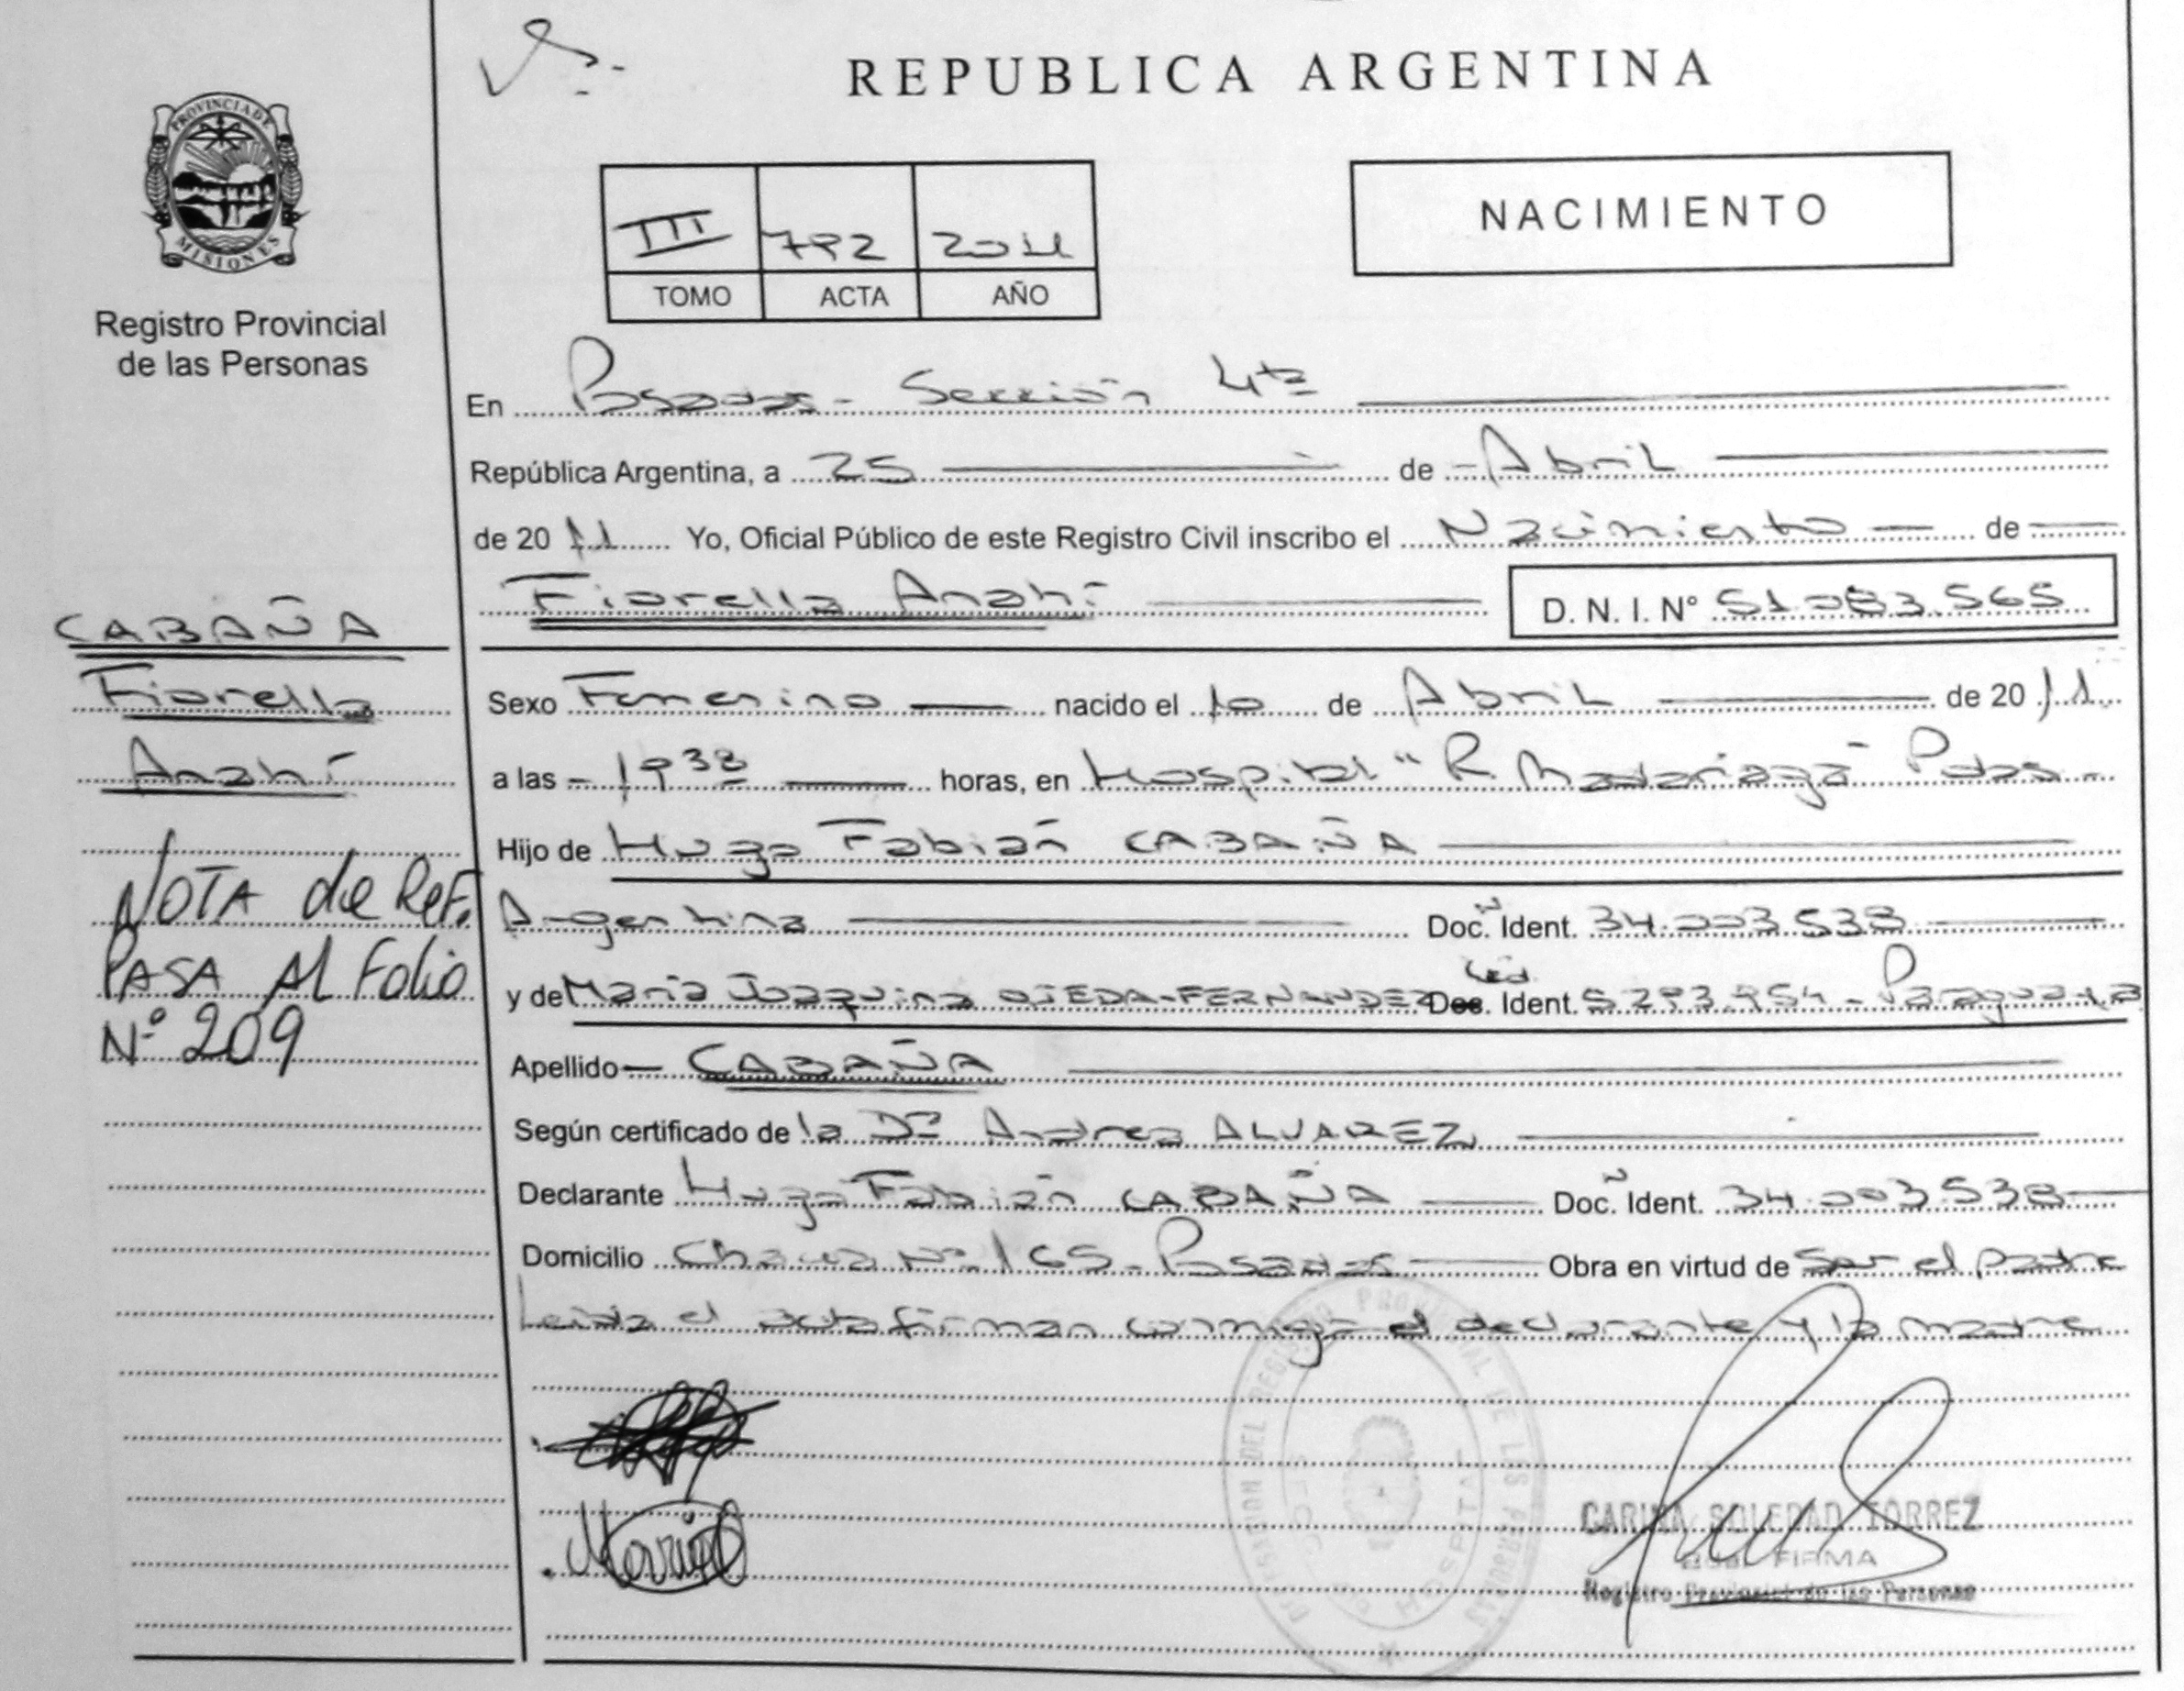 REPUBLICA ARGENTINA
PROVINCIA DE MISIONES
Registro Provincial
de las Personas
III 792 2011
TOMO ACTA AÑO
NACIMIENTO
En Posadas - Sección 4ta
República Argentina, a 25 de Abril
de 2011 Yo, Oficial Público de este Registro Civil inscribo el Nacimiento de
Fiorella Anahí D. N. I. N° 51.083.565
CABAÑA
Fiorella
Anahí
NOTA de Ref.
PASA Al Folio
N° 209
Sexo Femenino nacido el 10 de Abril de 2011
a las 19 38 horas, en Hospital "R. Madariaga" Pdas -
Hijo de Hugo Fabián CABAÑA
Argentina Doc. Ident. 34.003.538
y de María Joaquina OJEDA-FERNANDEZ Ced. Doc. Ident. 5.293.954 - Paraguaya
Apellido CABAÑA
Según certificado de la Dra Andrea ALVAREZ
Declarante Hugo Fabián CABAÑA Doc. Ident. 34.003.538
Domicilio Chacra N° 165 - Posadas Obra en virtud de ser el padre
Leída el acta firman conmigo el declarante y la madre
CARINA SOLEDAD TORREZ
FIRMA
Registro Provincial de las Personas